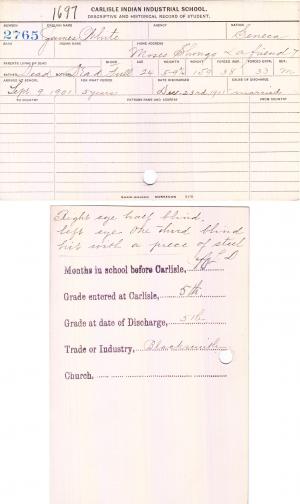 1697
CARLISLE INDIAN INDUSTRIAL SCHOOL.
DESCRIPTIVE AND HISTORICAL RECORD OF STUDENT.
NUMBER ENGLISH NAME AGENCY NATION
2765 James White Seneca
BAND INDIAN NAME HOME ADDRESS
Moses Shongo a friend
PARENTS LIVING OR DEAD BLOOD AGE HEIGHT WEIGHT FORCED INSP. FORCED EXPR. SEX
Dead Dead Full 24 5-9½ 159 38 33 M
ARRIVED AT SCHOOL FOR WHAT PERIOD DATE DISCHARGED CAUSE OF DISCHARGE
Sept. 9, 1901 5 years Dec 23rd married
TO COUNTRY PATRONS NAME AND ADDRESS FROM COUNTRY
Right eye half blind.
left eye one third blind
hit with a piece of steel
Months in school before Carlisle,
Grade entered at Carlisle, 5th
Grade at date of Discharge, 5th
Trade or Industry, Blacksmith
Church,